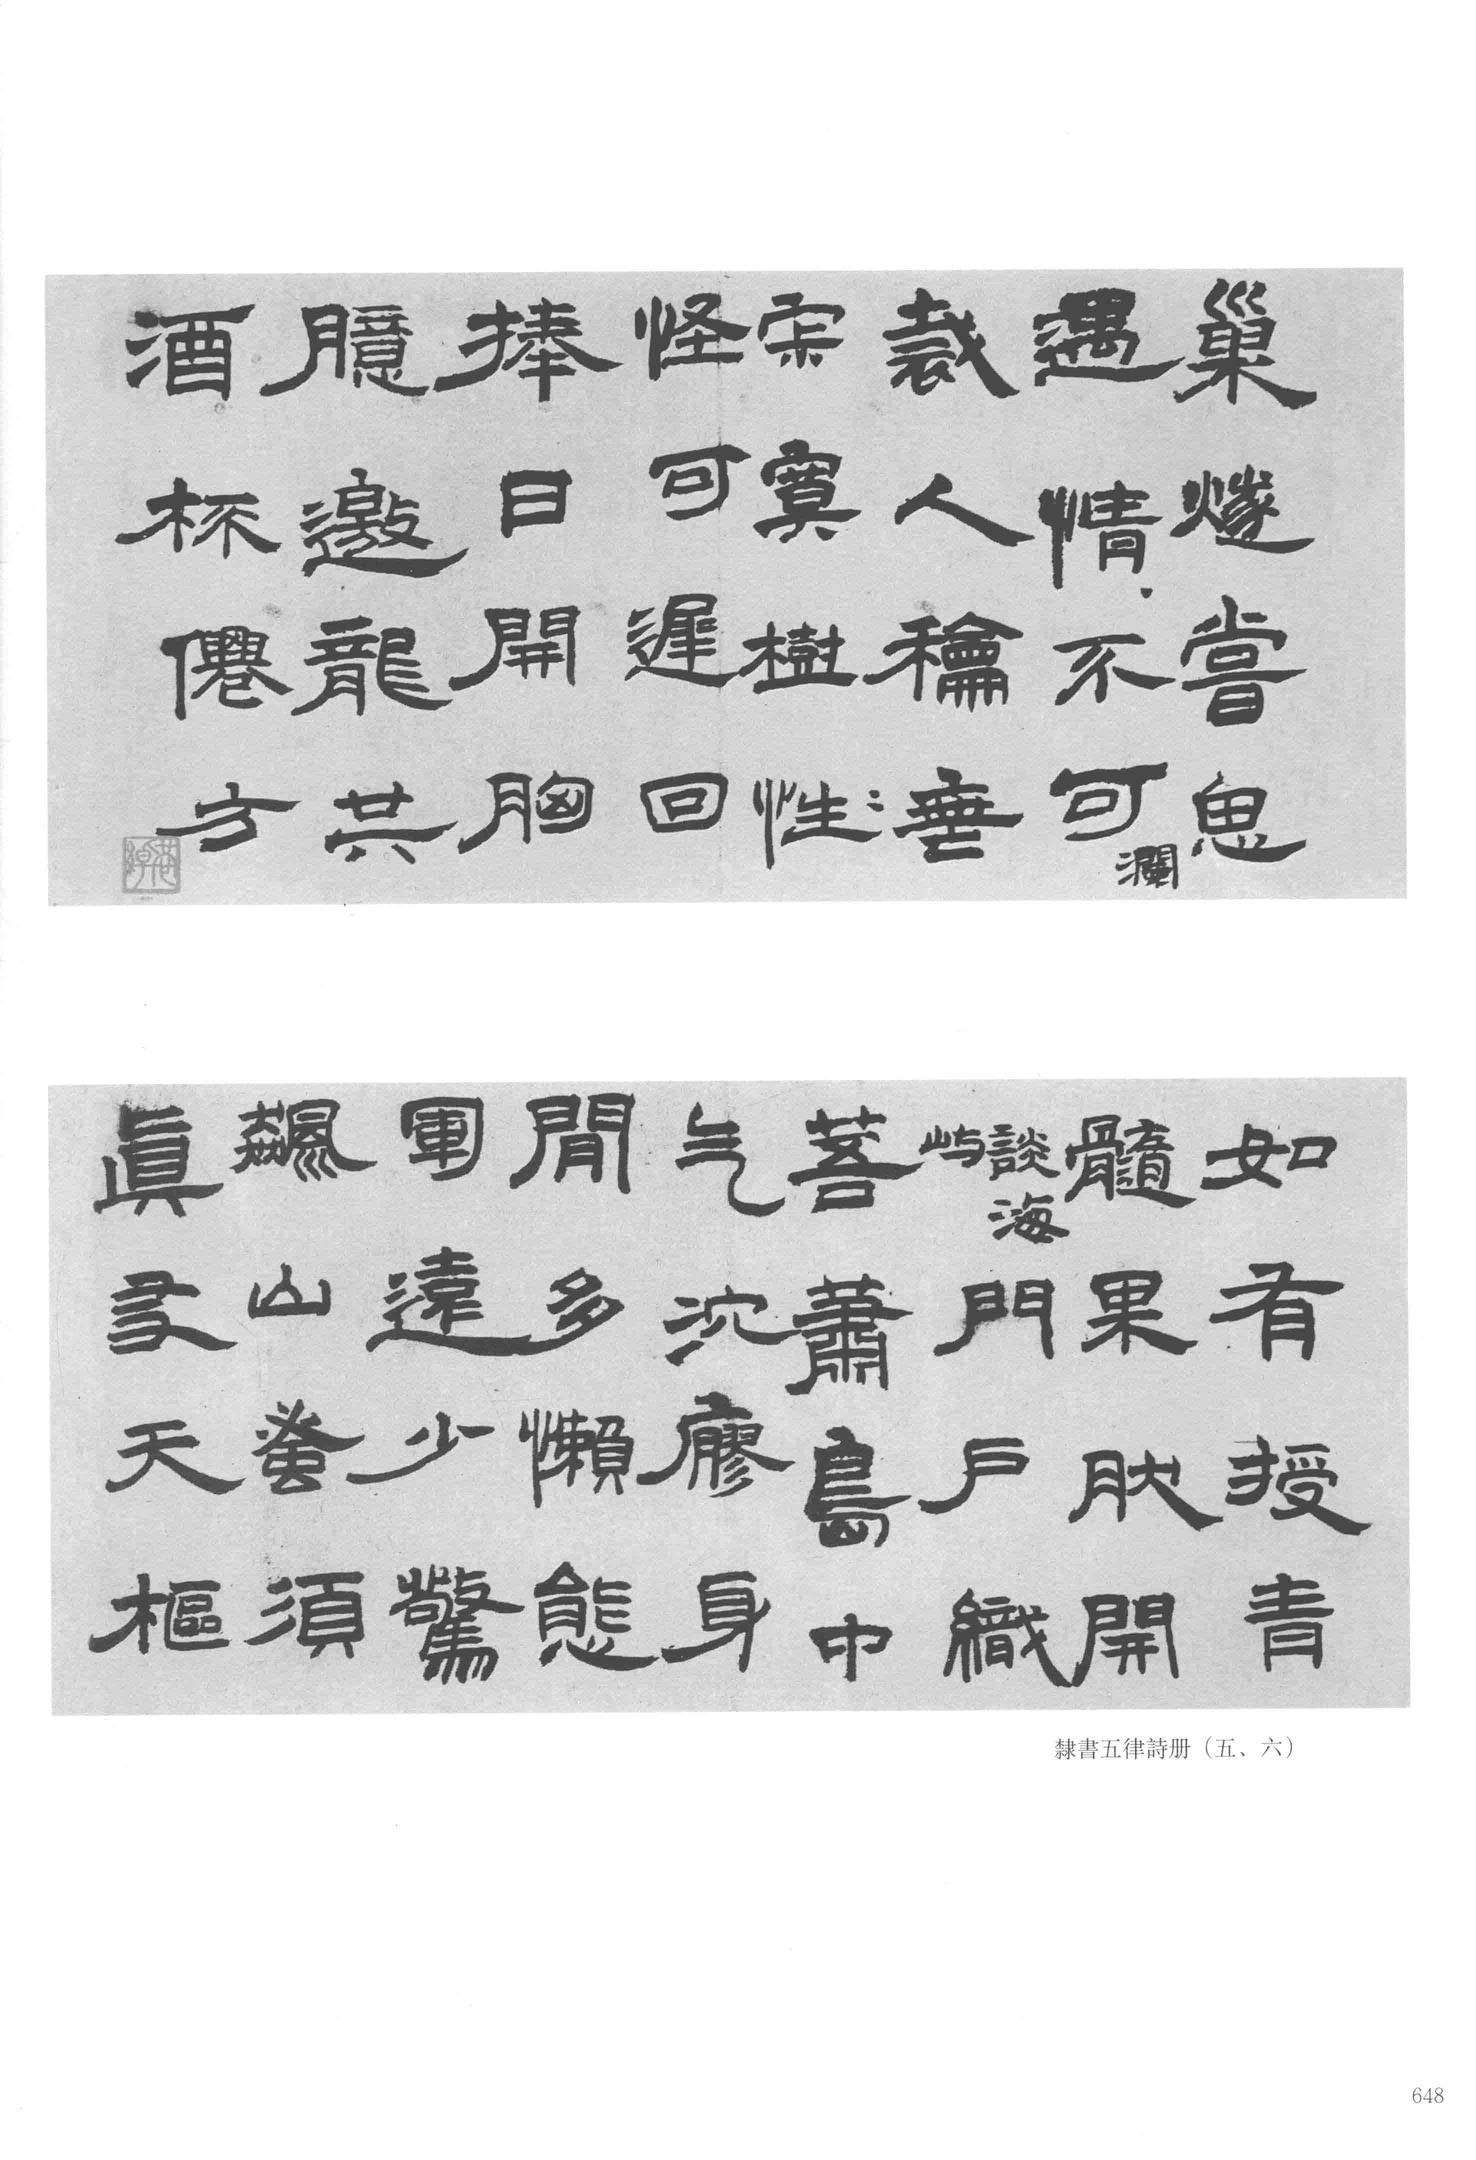 巢燧嘗思
遇情不可瀾
裁人龠垂
宗冥樹性
怪可遲回
捧日開胸
臆邀龍共
酒杯僊方
如有授青
髓果肰開
談海門戶織
嶼
菩蕭島中
气沈廖身
閒多懶態
軍遠少驚
飙山蚩須
眞叟天樞
隸書五律詩册（五、六）
648